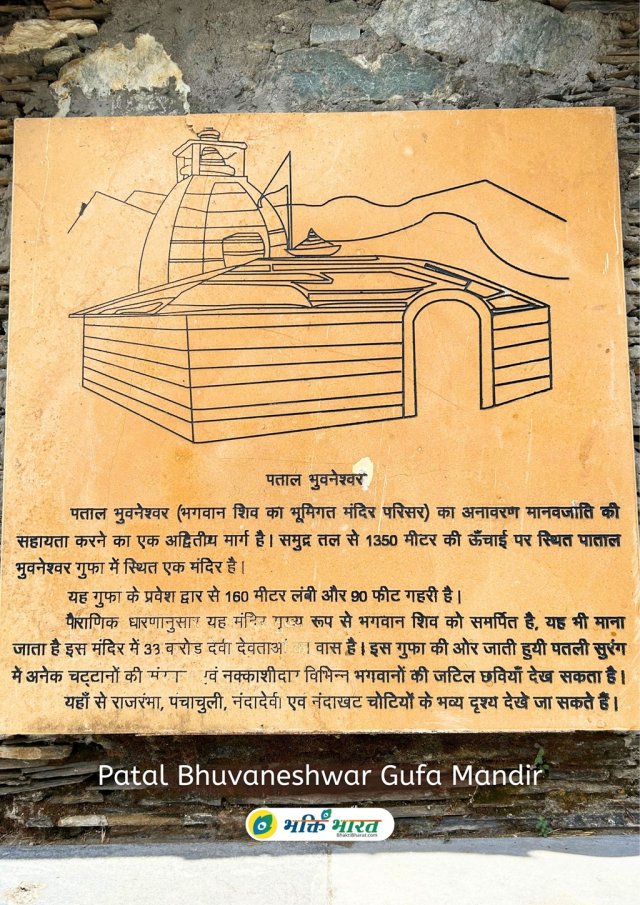 पताल भुवनेश्वर
पताल भुवनेश्वर (भगवान शिव का भूमिगत मंदिर परिसर) का अनावरण मानवजाति की
सहायता करने का एक अद्वितीय मार्ग है। समुद्र तल से 1350 मीटर की ऊँचाई पर स्थित पाताल
भुवनेश्वर गुफा में स्थित एक मंदिर है।
यह गुफा के प्रवेश द्वार से 160 मीटर लंबी और 90 फीट गहरी है।
पौराणिक धारणानुसार यह मंदिर मुख्य रूप से भगवान शिव को समर्पित है, यह भी माना
जाता है इस मंदिर में 33 करोड देवताओं वास है। इस गुफा की ओर जाती हुयी पतली सुरंग
में अनेक चट्टानों की एवं नक्काशीदार विभिन्न भगवानों की जटिल छवियाँ देख सकता है।
यहाँ से राजरंभा, पंचाचुली, नंदादेवी एवं नंदाखट चोटियों के भव्य दृश्य देखे जा सकते हैं।
Patal Bhuvaneshwar Gufa Mandir
भक्ति भारत
BhaktiBharat.com